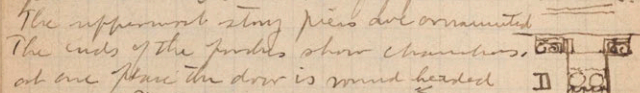 The uppermost story piers are ornamented
The ends of the porches show chambers.
at one place the door is round headed